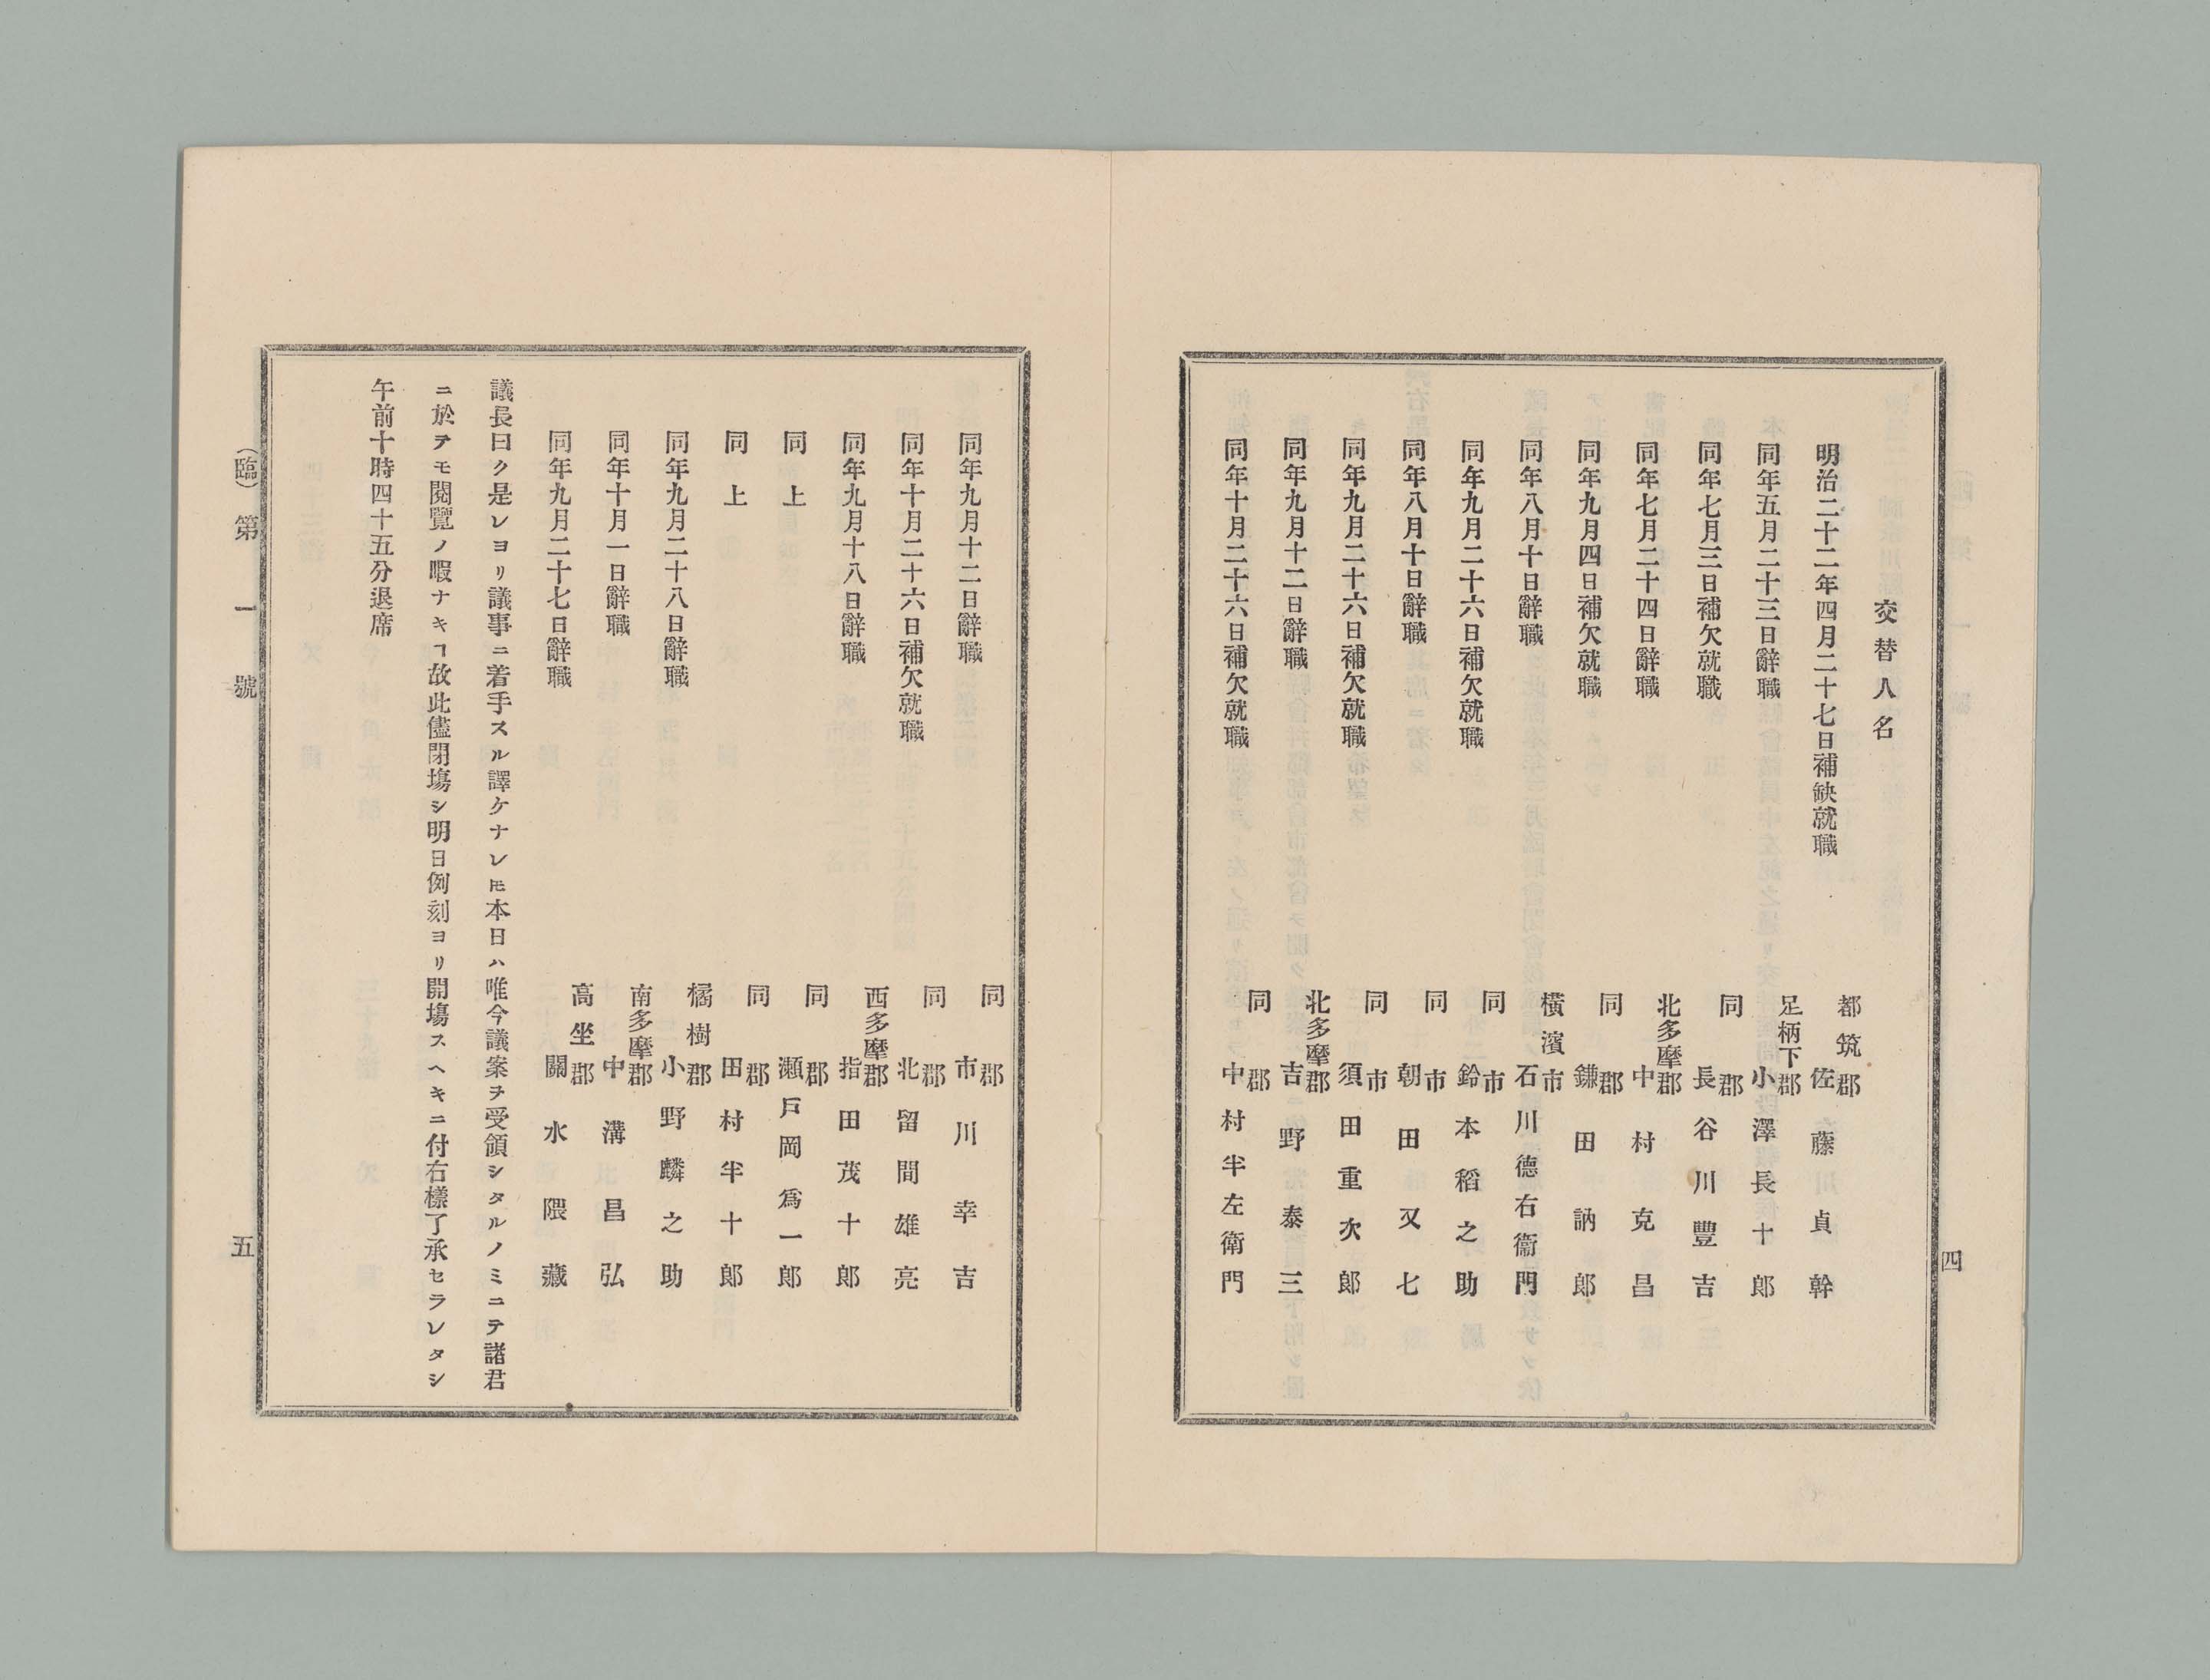 交替人名
明治二十二年四月二十七日補缺就職 都筑郡 佐藤貞幹
同年五月二十三日辭職 足柄下郡 小澤長十郎
同年七月三日補欠就職 同郡 長谷川豐吉
同年七月二十四日辭職 北多摩郡 中村克昌
同年九月四日補欠就職 同郡 鎌田訥郎
同年八月十日辭職 橫濱市 石川德右衞門
同年九月二十六日補欠就職 同市 鈴木稻之助
同年八月十日辭職 同市 朝田又七
同年九月二十六日補欠就職 同市 須田重次郎
同年九月十二日辭職 北多摩郡 吉野泰三
同年十月二十六日補欠就職 同郡 中村半左衛門
四
同年九月十二日辭職 同郡 市川幸吉
同年十月二十六日補欠就職 同郡 北留間雄亮
同年九月十八日辭職 西多摩郡 指田茂十郎
同上 同郡 瀬戸岡爲一郎
同上 同郡 田村半十郎
同年九月二十八日辭職 橘樹郡 小野麟之助
同年十月一日辭職 南多摩郡 中溝昌弘
同年九月二十七日辭職 高坐郡 關水隈藏
議長曰ク是レヨリ議事ニ着手スル譯ケナレ𪜈本日ハ唯今議案ヲ受領シタルノミニテ諸君
ニ於テモ閱覽ノ暇ナキヿ故此儘閉塲シ明日例刻ヨリ開塲スヘキニ付右樣了承セラレタシ
午前十時四十五分退席
(臨)第一號
五